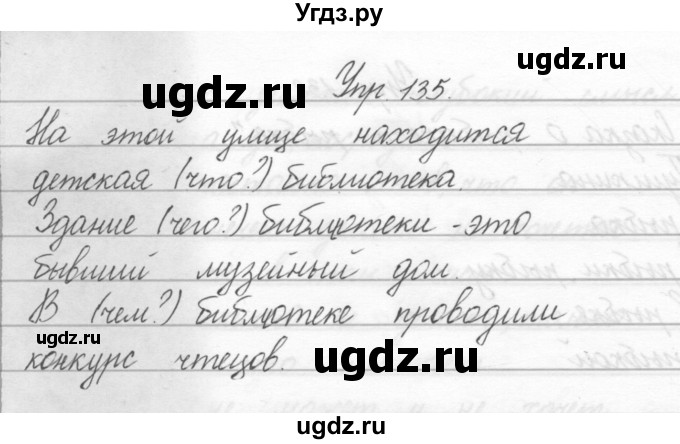 Угдз.ру
ugdz.ru
ugdz.ru
Упр 135.
На этой улице находится
детская (что?) библиотека.
Здание (чего?) библиотеки - это
бывший музейный дом.
В (чем?) библиотеке проводили
конкурс чтецов.
ugdz.ru
ugdz.ru
ugdz.ru
ugdz.ru
ugdz.ru
ugdz.ru